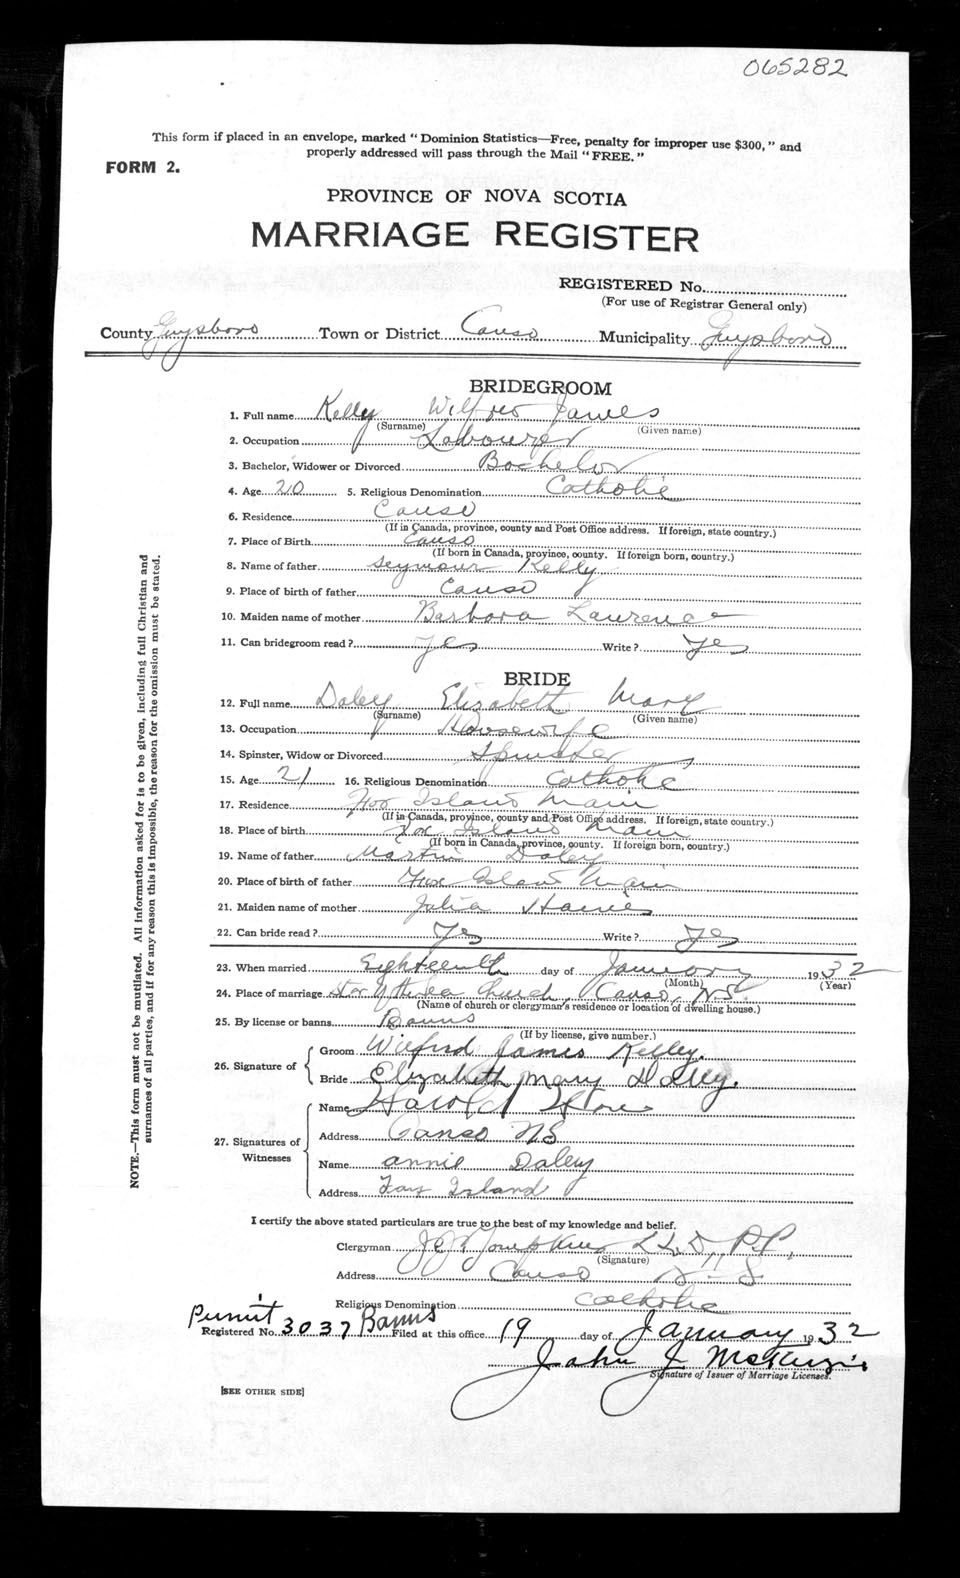 065282
This form if placed in an envelope, marked "Dominion Statistics—Free, penalty for improper use $300," and
properly addressed will pass through the Mail "FREE."
FORM 2.
PROVINCE OF NOVA SCOTIA
MARRIAGE REGISTER
REGISTERED No.
(For use of Registrar General only)
County Guysboro Town or District Canso Municipality Guysboro
BRIDEGROOM
1. Full name Kelly Wilfred James
(Surname) (Given name)
2. Occupation Labourer
3. Bachelor, Widower or Divorced Bachelor
4. Age 20 5. Religious Denomination Catholic
6. Residence Canso
(If in Canada, province, county and Post Office address. If foreign, state country.)
7. Place of Birth Canso
(If born in Canada, province, county. If foreign born, country.)
8. Name of father Seymour Kelly
9. Place of birth of father Canso
10. Maiden name of mother Barbara Laurence
11. Can bridegroom read? Yes Write? Yes
BRIDE
12. Full name Daley Elizabeth Mary
(Surname) (Given name)
13. Occupation Housewife
14. Spinster, Widow or Divorced Spinster
15. Age 21 16. Religious Denomination Catholic
17. Residence Fox Island Main
(If in Canada, province, county and Post Office address. If foreign, state country.)
18. Place of birth Fox Island Main
(If born in Canada, province, county. If foreign born, country.)
19. Name of father Martin Daley
20. Place of birth of father Fox Island Main
21. Maiden name of mother Julia
22. Can bride read? Yes Write? Yes
23. When married Eighteenth day of January 1932
(Month) (Year)
24. Place of marriage Star of the Sea Church, Canso, N.S.
(Name of church or clergyman's residence or location of dwelling house.)
25. By license or banns Banns
(If by license, give number.)
26. Signature of
Groom Wilfred James Kelley.
Bride Elizabeth Mary Daley.
27. Signatures of Witnesses
Name Harold
Address Canso NS
Name Annie Daley
Address Fox Island
I certify the above stated particulars are true to the best of my knowledge and belief.
Clergyman J.J. Tompkins LL.D., P.P.
(Signature)
Address Canso N.S.
Religious Denomination Catholic
Permit Banns
Registered No. 3037 Filed at this office 19 day of January 1932
John J McKenzie
Signature of Issuer of Marriage Licenses.
[SEE OTHER SIDE]
NOTE.—This form must not be mutilated. All information asked for is to be given, including full Christian and
surnames of all parties, and if for any reason this is impossible, the reason for the omission must be stated.